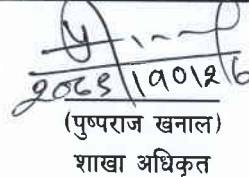 २०६९।१०।२६
(पुष्पराज खनाल)
शाखा अधिकृत